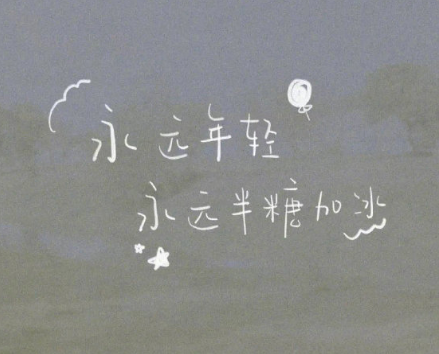 永远年轻
永远半糖加冰